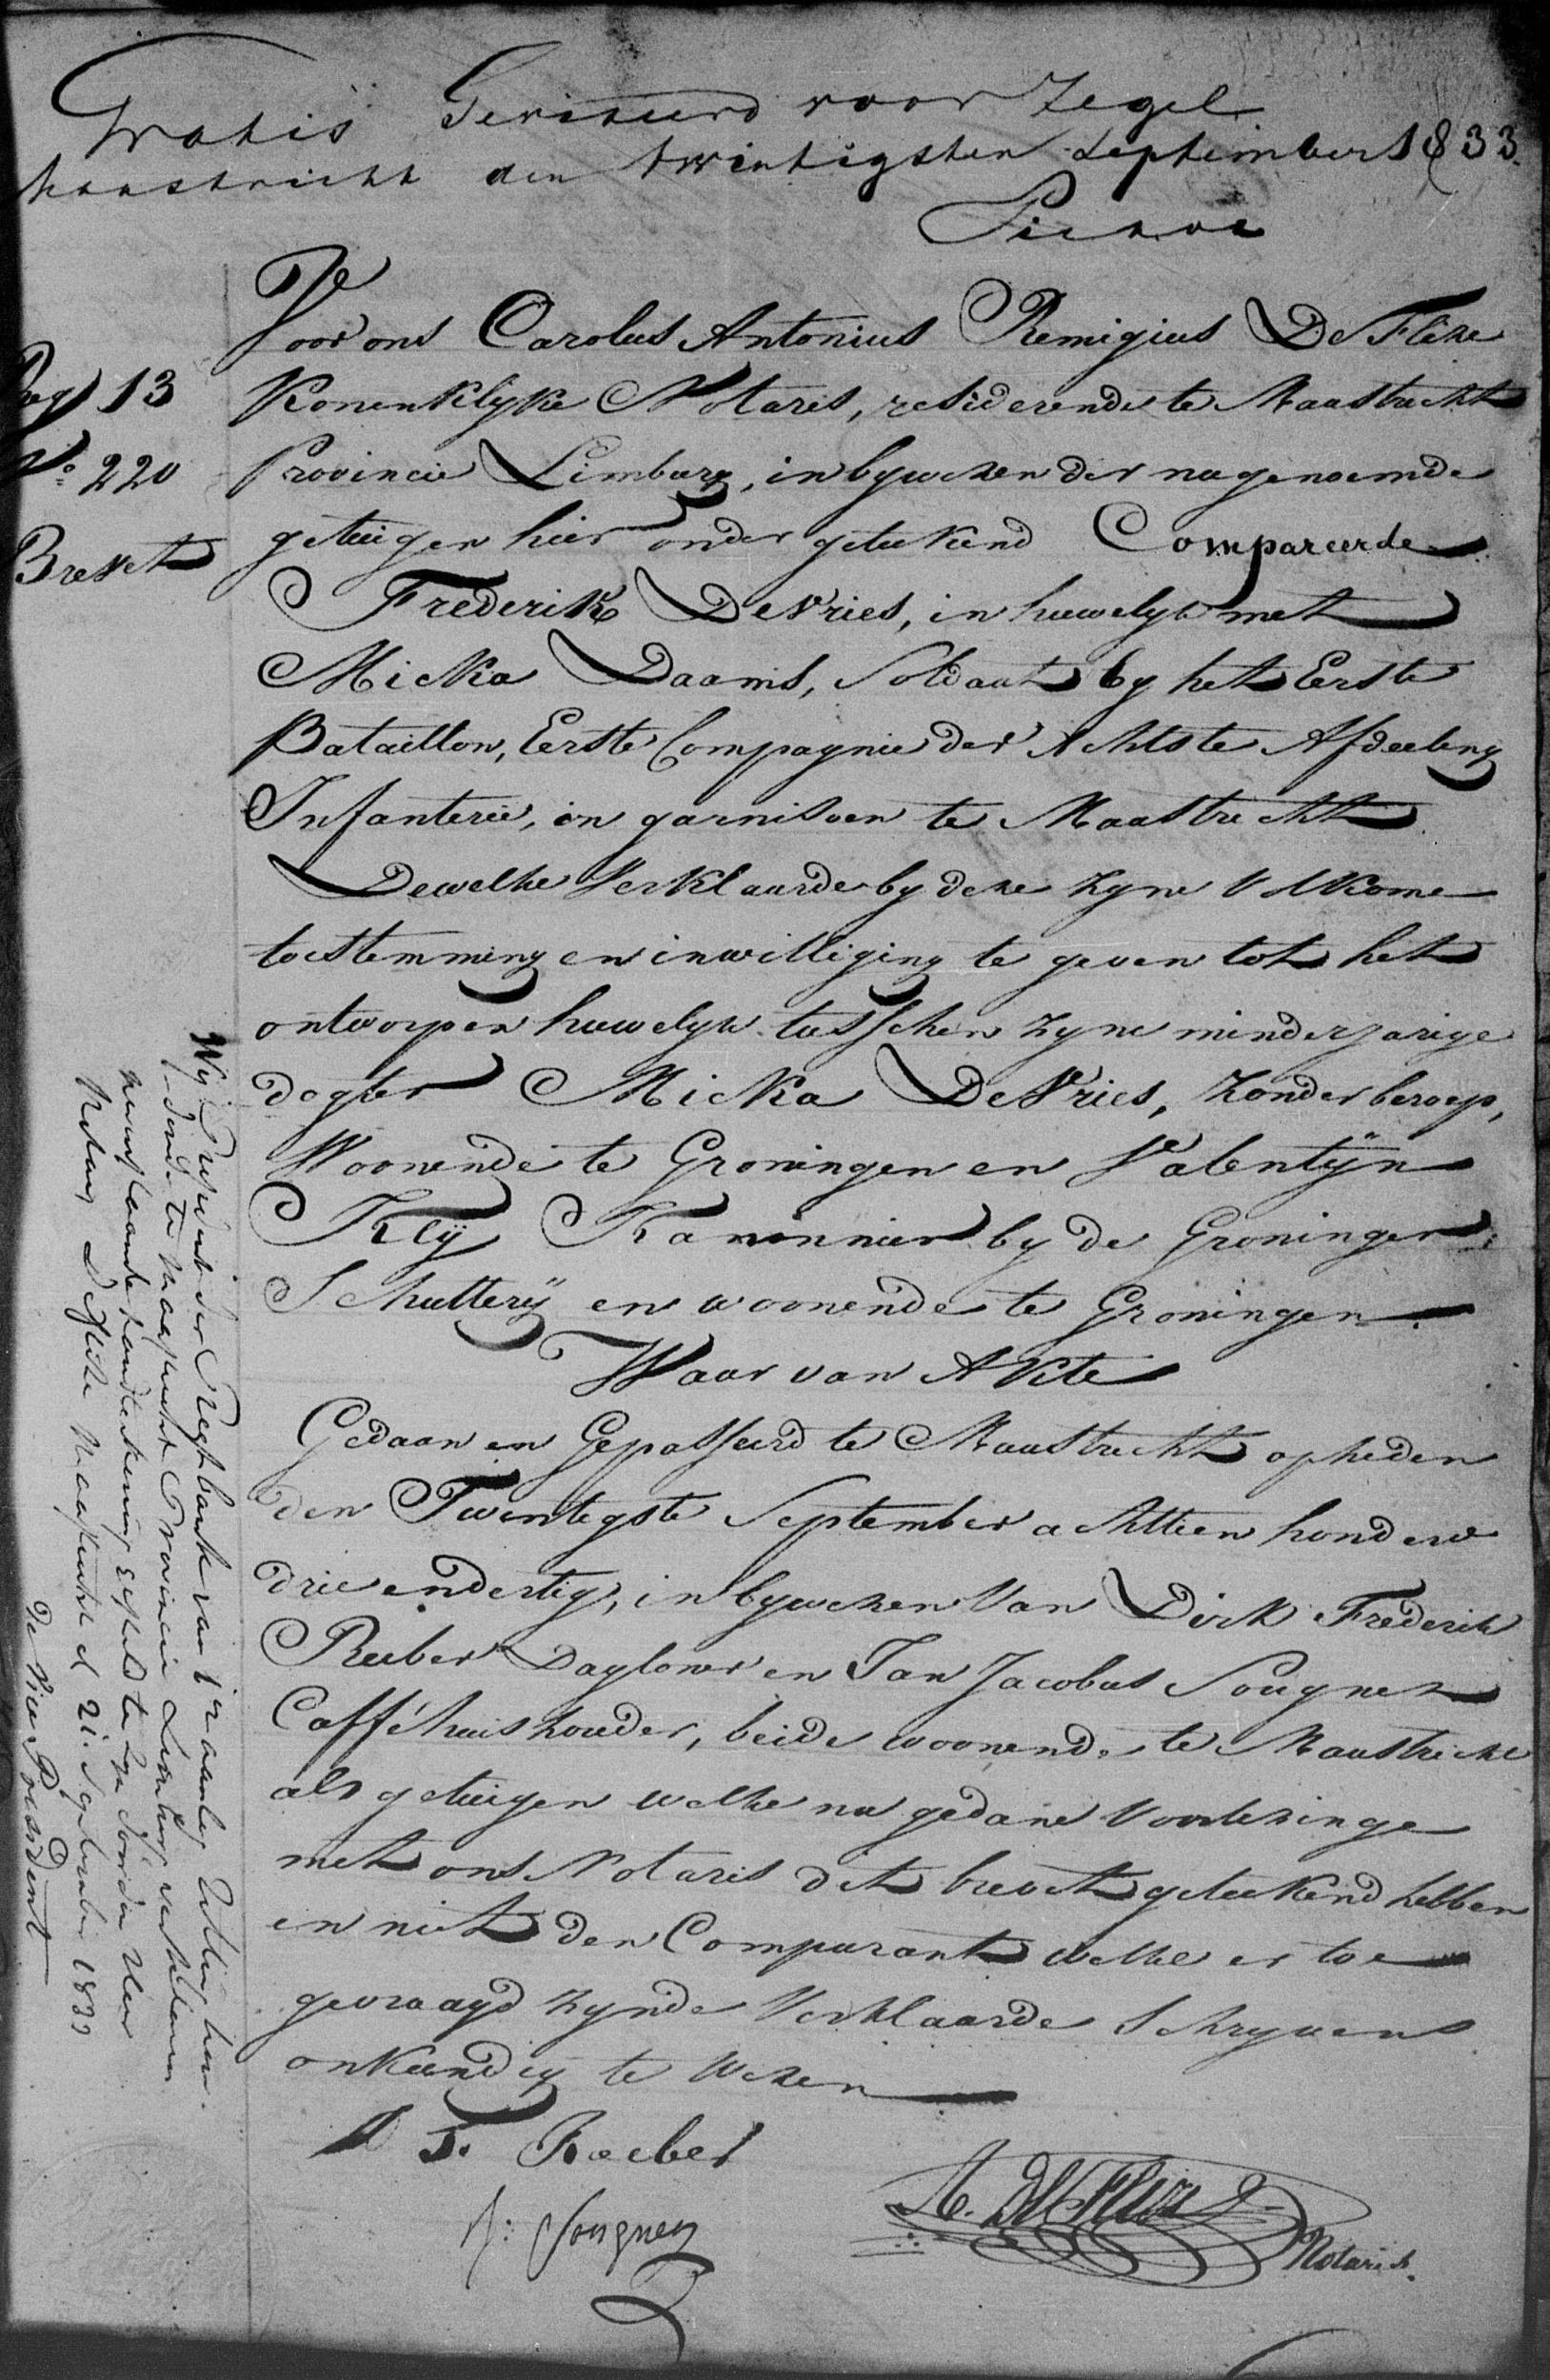 Gratis Geviseerd voor Zegel
Maastricht den twintigsten September 1833.
Reg 13
No 220
Brevet
Voor ons Carolus Antonius Remigius De Flize
Konenklyke Notaris, resideerende te Maastricht
Provincie Limburg, in bywezen der nagenoemde
getuigen hier onder geteekend Compareerde
Frederik DeVries, in huwelyk met
Micka Daams, Soldaat by het Eerste
Bataillon, Eerste Compagnie der Achtste Afdeeling
Infanterie, in garnisoen te Maastricht
Dewelke Verklaarde by deze zyne Volkome
toestemming en inwilliging te geven tot het
ontworpen huwelyk tusschen zyne minderjarige
dogter Micka DeVries, Zonder beroep,
Woonende te Groningen en Valentÿn
Kleÿ Kanonnier by de Groninger
Schutterÿ en woonende te Groningen.
Waar van Akte
Gedaan en Gepasseerd te Maastricht op heden
den Twentegste September achttien honderd
drie en dertig, in bywezen Van Dirk Frederik
Reeber Dagloner en Jan Jacobus Sougnez
Cafféhuishouder, beide woonende te Maastricht
als getuigen welke na gedane Voorlezinge
met ons Notaris dit brevet geteekend hebben
en niet den Comparant welke er toe
gevraagd zynde Verklaarde Schryvens
onkundig te Wezen
D F. Reeber
J: Sougnez
A. DeFlize
Notaris.
Wij President der Regtbank van 1e aanleg zitting hou-
-dende te Maastricht Provincie Limburg verklaren
nevenstaande handteekening echt te zijn van den Heer
Notaris Deflize Maastricht d 21 September 1833
De Vice President